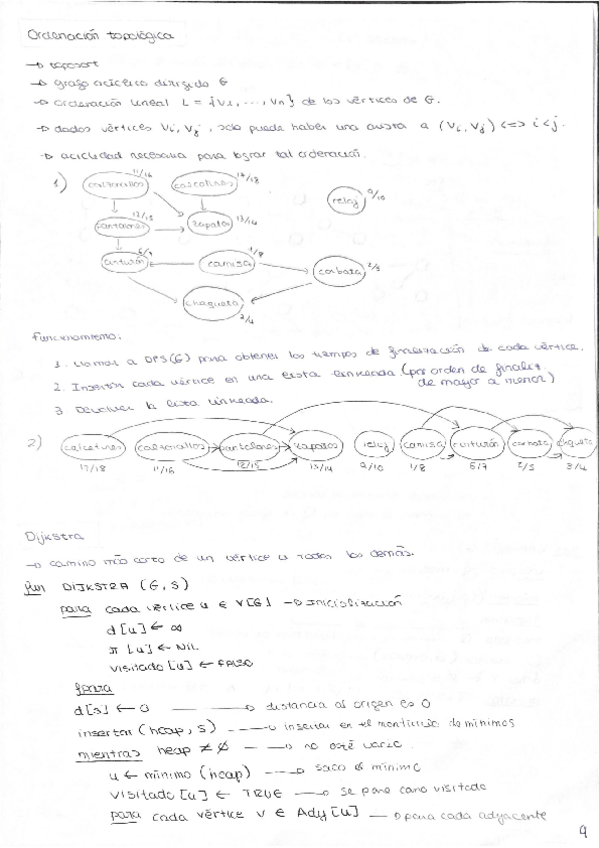 Ordenación topológica
→ toposort
→ grafo acíclico dirigido G
→ ordenación lineal L = {v1, ..., vn} de los vértices de G.
→ dados vértices Vi, Vj, solo puede haber una arista a (Vi, Vj) <=> i<j.
→ aciclidad necesaria para lograr tal ordenación.
1)
11/16
17/18
calzoncillos
calcetines
reloj
9/10
12/15
13/14
pantalones
zapatos
6/7
1/8
cinturón
camisa
corbata
2/5
chaqueta
3/4
Funcionamiento:
1. Llamar a DFS(G) para obtener los tiempos de finalización de cada vértice.
2. Insertar cada vértice en una lista linkeada. (por orden de finaliz.
de mayor a menor)
3. Devolver la lista linkeada.
2)
calcetines
calzoncillos
pantalones
zapatos
reloj
camisa
cinturón
corbata
chaqueta
17/18
11/16
12/15
13/14
9/10
1/8
6/7
2/5
3/4
Dijkstra
→ camino más corto de un vértice a todos los demás.
fun DIJKSTRA (G, S)
para cada vértice u ∈ V[G] → Inicialización
d[u] ← ∞
π[u] ← NIL
visitado[u] ← FALSO
fpara
d[s] ← 0 → distancia al origen es 0
insertar (heap, s) → insertar en el montículo de mínimos
mientras heap ≠ ∅ → no esté vacío
u ← mínimo (heap) → saco el mínimo
visitado [u] ← TRUE → se pone como visitado
para cada vértice v ∈ Ady[u] → para cada adyacente
9